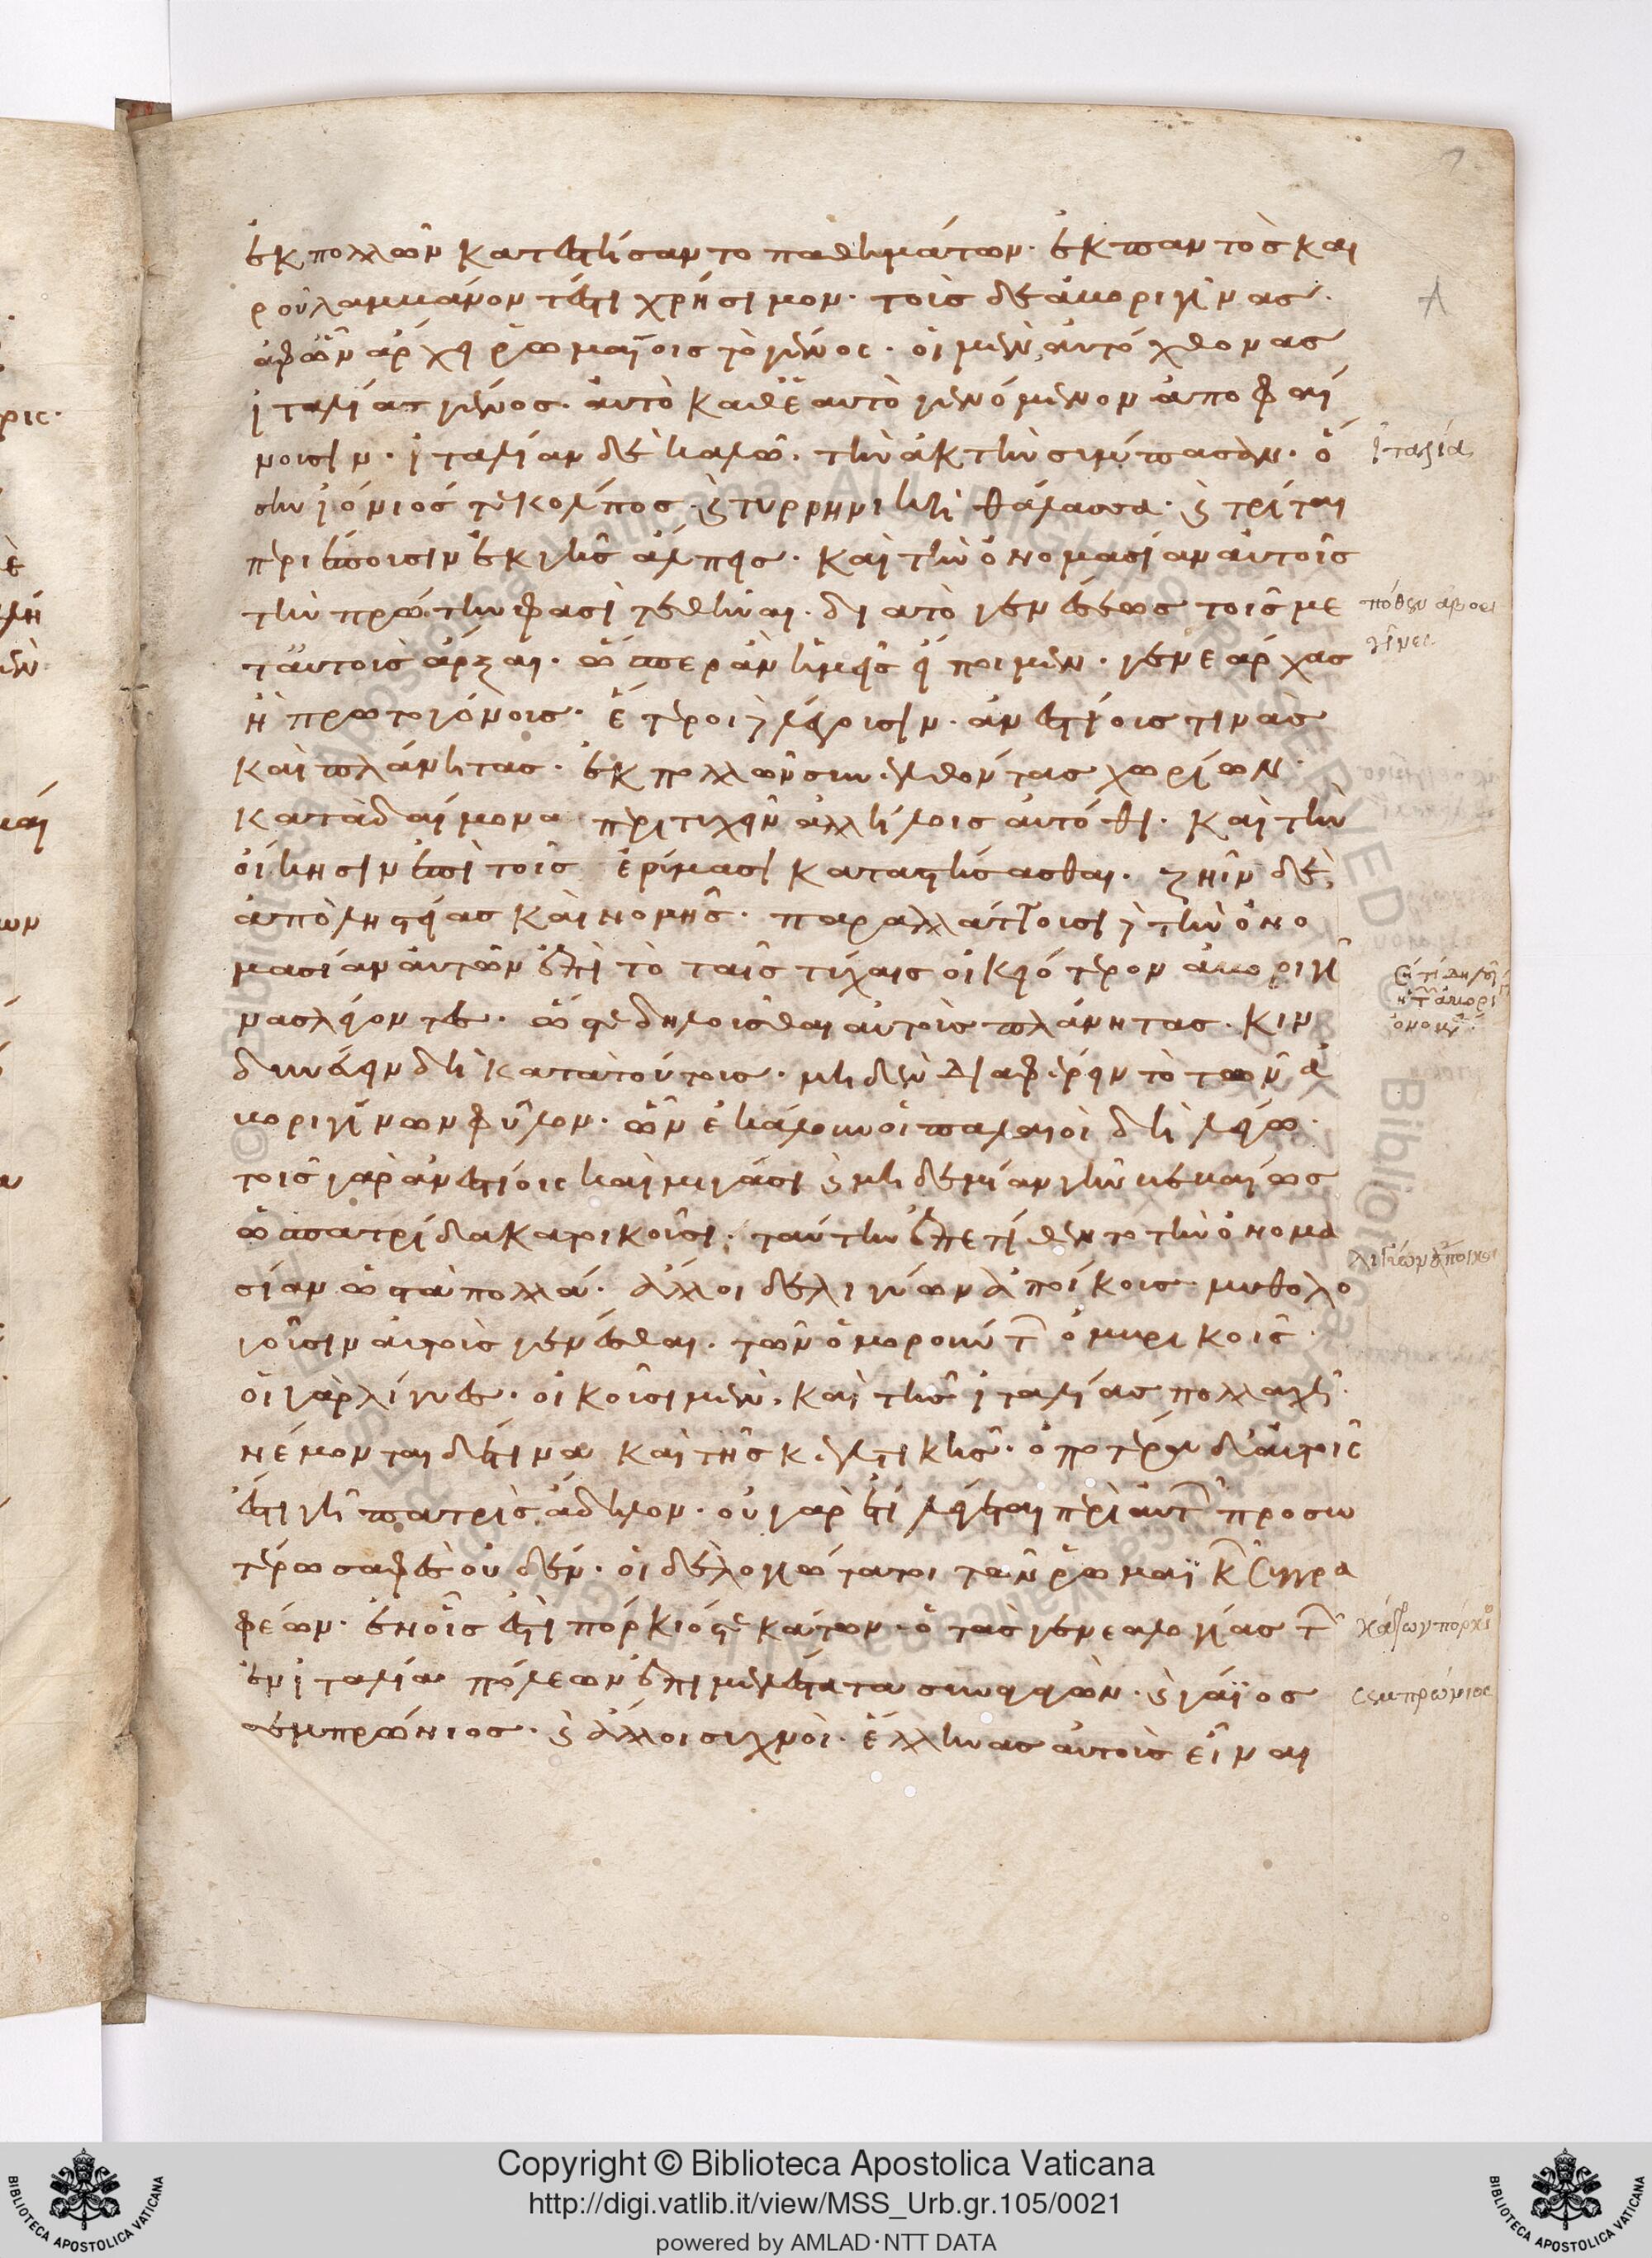 ἐκ πολλῶν κατεστήσαντο παθημάτων· ἐκ παντὸς και
ροῦ λαμβάνοντές τι χρήσιμον· τοὺς δὲ ἀβοριγῖνας·
ἀφ' ὧν ἄρχει ῥωμαίοις τὸ γένος· οἱ μὲν αὐτόχθονας
ἰταλίας γένος· αὐτὸ καθ' ἑαυτὸ γενόμενον ἀποφαί
νουσιν· ἰταλίαν δὲ καλῶ· τὴν ἀκτὴν σύμπασαν· ὅ
σην ἰόνιός τε κόλπος· καὶ τυρρηνικὴ θάλασσα· καὶ τρίται
περιέπουσιν ἐκ γῆς ἄλπεις· καὶ τὴν ὀνομασίαν αὐτοῖς
τὴν πρώτην φασὶ τεθῆναι· διὰ τὸ γενέσεως τοῖς με
τ' αὐτοὺς ἄρξαι· ὥσπερ ἂν ἡμεῖς εἴποιμεν· γενεάρχας
ἢ πρωτογόνους· ἕτεροι λέγουσιν· ἀνεστίους τινὰς
καὶ πλάνητας· ἐκ πολλῶν συνελθόντας χωρίων·
κατὰ δαίμονα περιτυχεῖν ἀλλήλοις αὐτόθι· καὶ τὴν
οἴκησιν ἐπὶ τοῖς ἐρύμασι καταστήσασθαι· ζῆν δὲ
ἀπὸ ληστείας καὶ νομῆς· παραλλάττουσι δὲ τὴν ὀνο
μασίαν αὐτῶν ἐπὶ τὸ ταῖς τύχαις οἰκειότερον ἀβοριγῖ
νας λέγοντες· ὥστε δηλοῦσθαι αὐτοὺς πλάνητας· κιν
δυνεύειν δὴ κατὰ τούτους· μηδὲν διαφέρειν τὸ τῶν ἀ
βοριγίνων φῦλον· ὧν ἐκάλουν οἱ παλαιοὶ δὴ λέγω·
τοῖς γὰρ ἀνεστίοις καὶ μιγάσι καὶ μηδεμίαν γῆν βεβαίως
ὡς πατρίδα κατοικοῦσι· ταύτην ἐπετίθεντο τὴν ὀνομα
σίαν ὡς τὰ πολλά· ἄλλοι δὲ λιγύων ἀποίκους μυθολο
γοῦσιν αὐτοὺς γενέσθαι· τῶν ὁμορούντων ὀμβρικοῖς·
οἱ γὰρ λίγυες· οἰκοῦσι μὲν καὶ τῆς ἰταλίας πολλαχῇ·
νέμονται δέ τινα καὶ τῆς κελτικῆς· ὁποτέρα δ' αὐτοῖς
ἐστι γῆ πατρὶς ἄδηλον· οὐ γὰρ ἔτι λέγεται περὶ αὐτῶν προσω
τέρω σαφὲς οὐδέν· οἱ δὲ λογιώτατοι τῶν ῥωμαϊκῶν συγγρα
φέων· ἐν οἷς ἐστι πόρκιός τε κάτων· ὁ τὰς γενεαλογίας τῶν
ἐν ἰταλία πόλεων ἐπιμελέστατα συναγαγών· καὶ γάϊος
σεμπρώνιος· καὶ ἄλλοι συχνοὶ· ἕλληνας αὐτοὺς εἶναι
ἰταλία
πόθεν ἀβορι
γῖνες
λιγύων ἄποικοι
κάτων πόρκιος
σεμπρώνιος
Copyright © Biblioteca Apostolica Vaticana
http://digi.vatlib.it/view/MSS_Urb.gr.105/0021
powered by AMLAD·NTT DATA
BIBLIOTECA APOSTOLICA VATICANA
BIBLIOTECA APOSTOLICA VATICANA